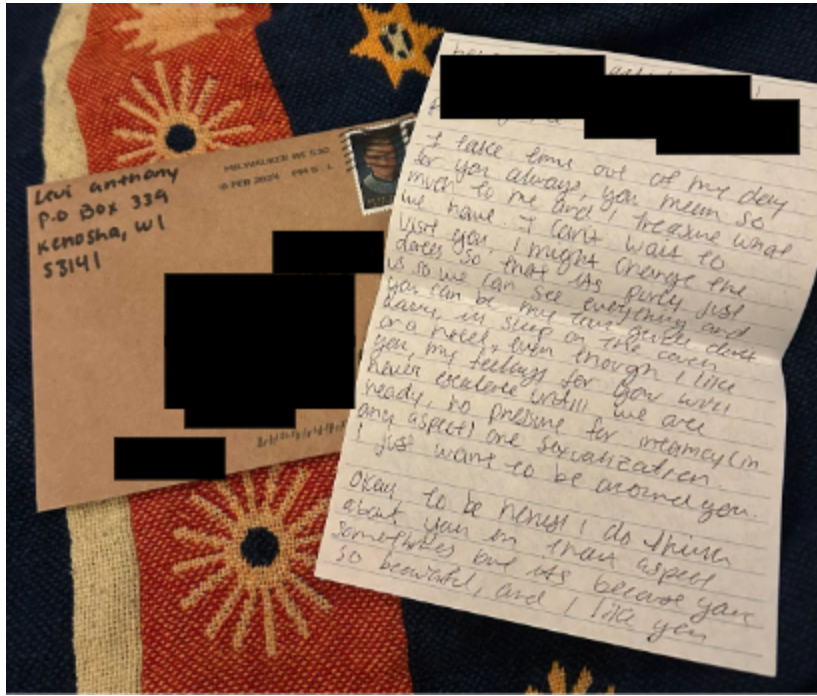 Levi anthony
P.O BOX 339
Kenosha, WI
53141
MILWAUKEE WI 530
FEB 2024 PM 5 L
I take time out of my day
for you always, you mean so
much to me and I treasure what
we have. I can't wait to
visit you, I might change the
dates so that its purly just
us so we can see everything and
you can be my tour guide, dont
sleep on the couch
or a hotel, even though I like
you, my feelings for you will
never escalate untill we are
ready, no pressure for intamacy (in
any aspect) sexualization.
I just want to be around you.
Okay to be honest I do think
about you in that aspect
sometimes but its because your
so beautiful, and I like you